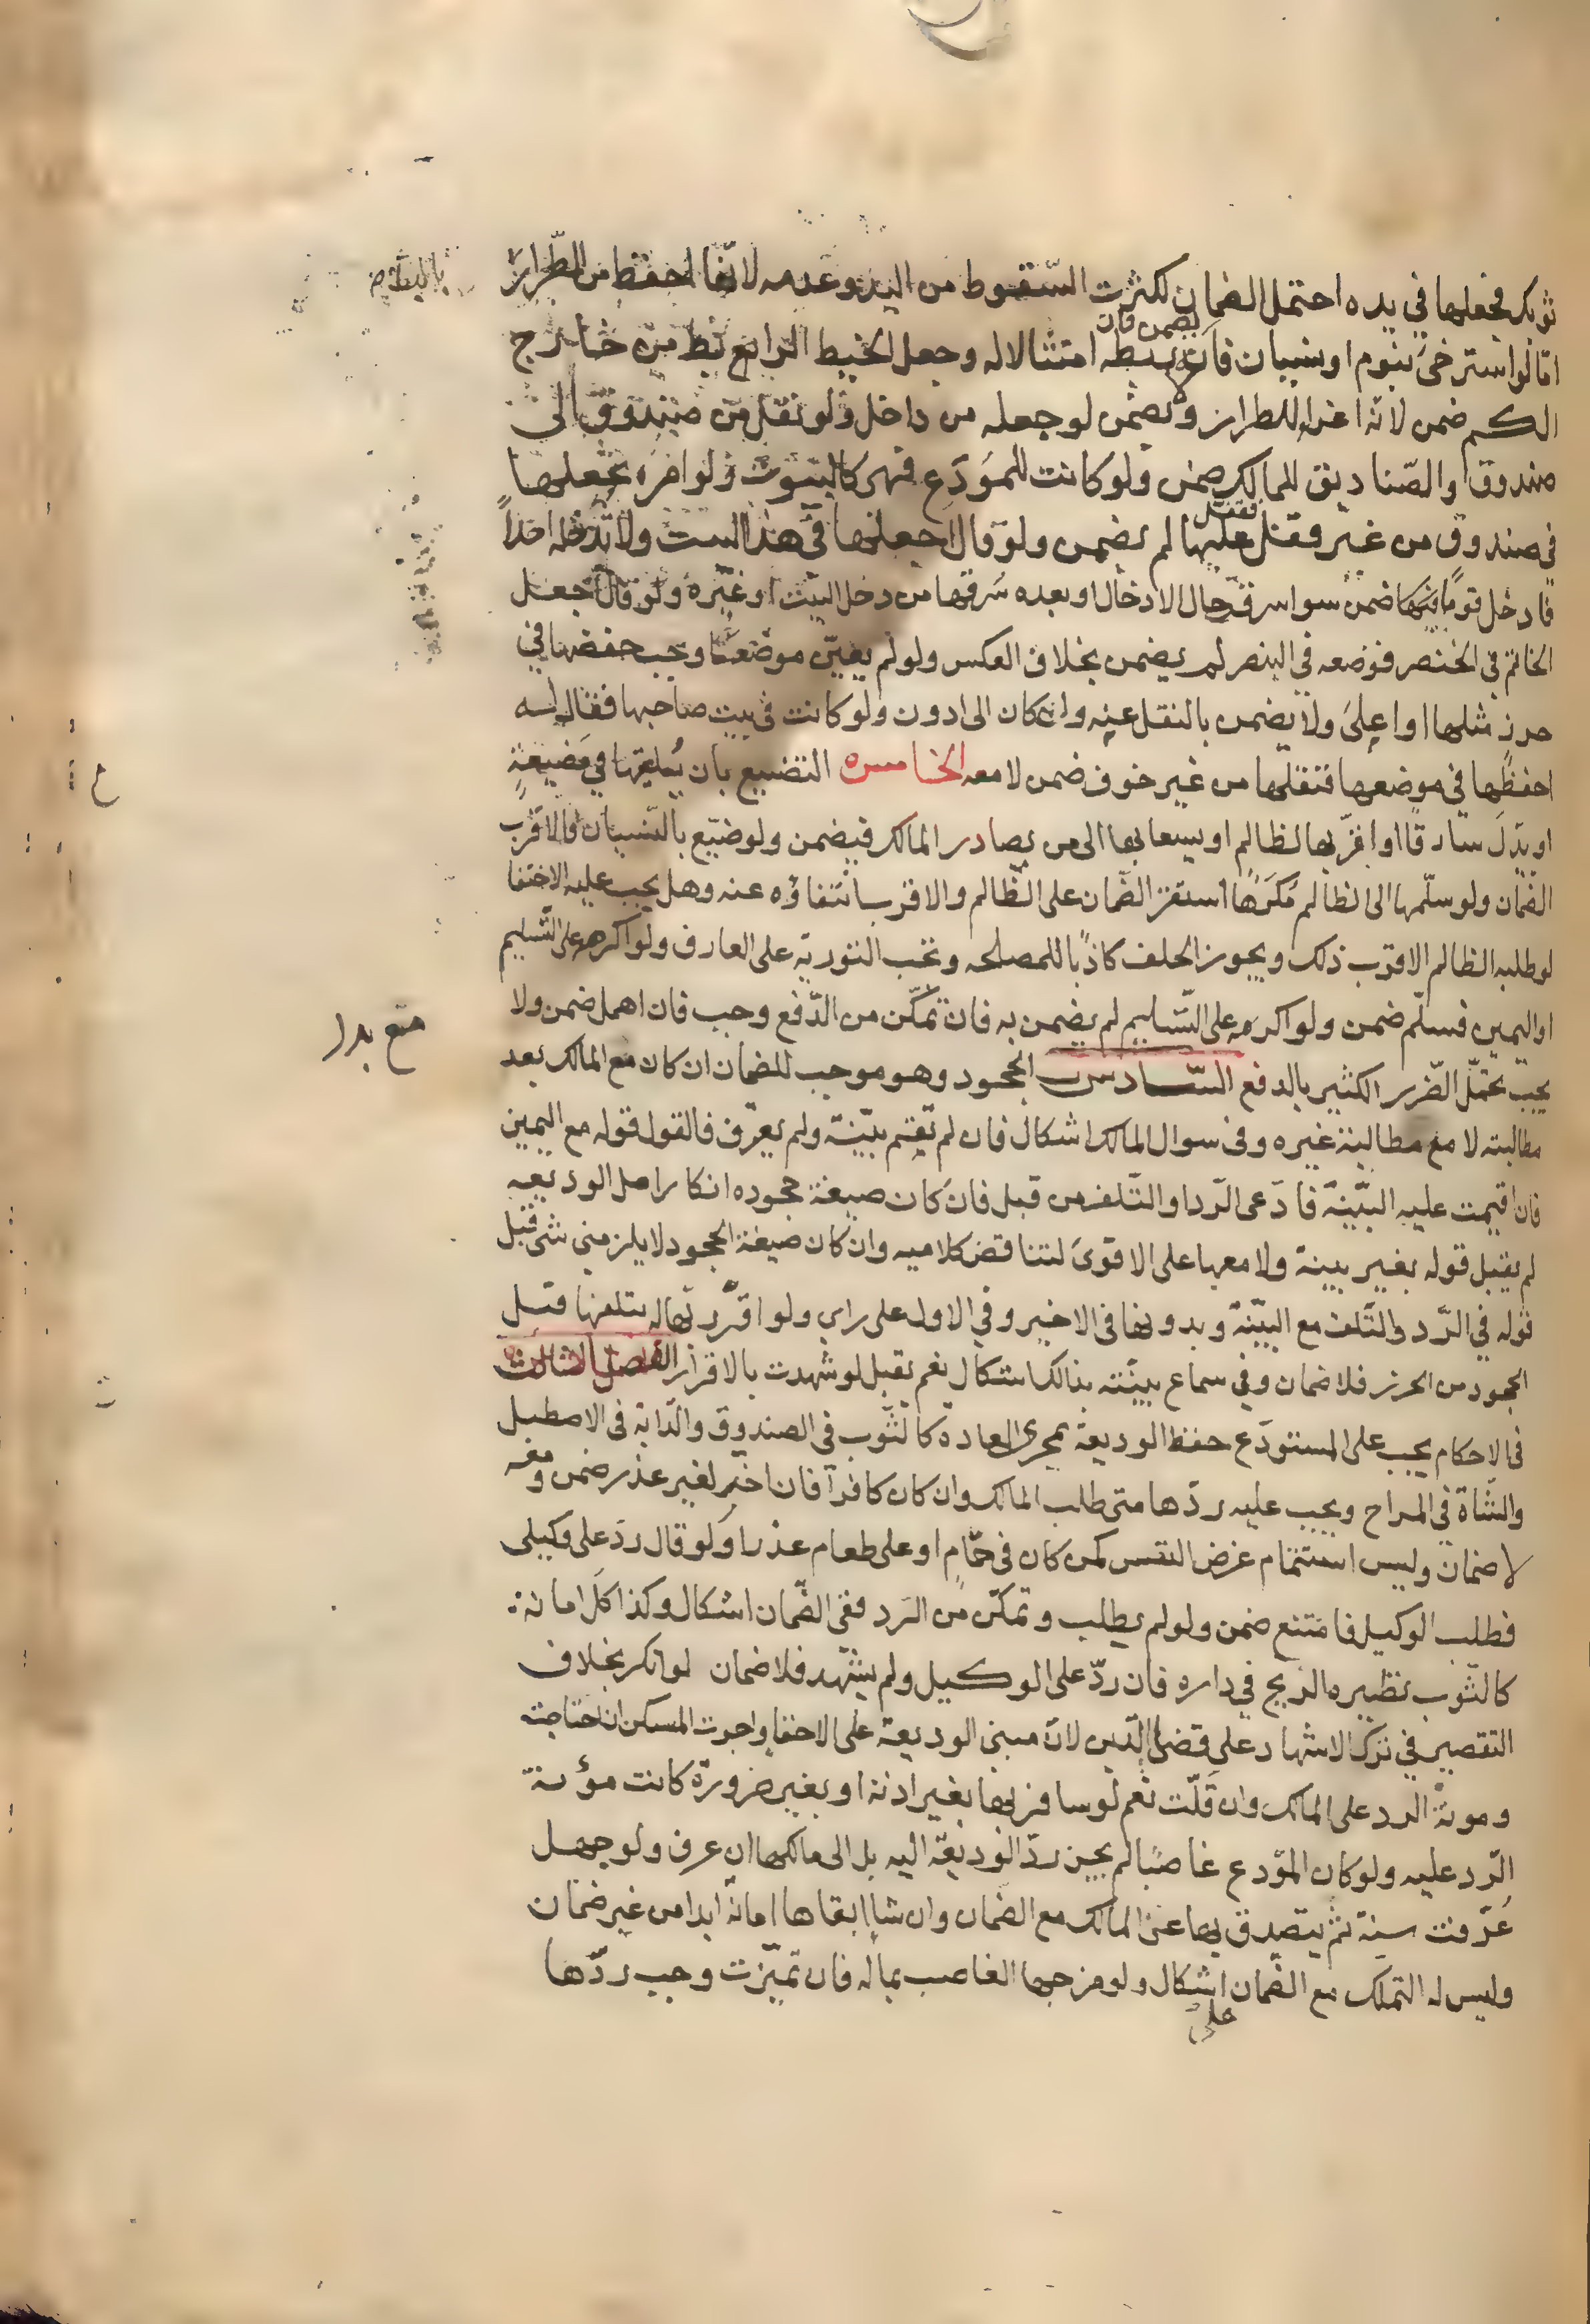 ثوبك فجعلها في يده احتمل الضمان لكثرت السّقوط من اليد وعدمه لانّها احفظ من الطّرار
امّا لو استرخى بنوم او نسيان فانه يضمن فان ربطه امتثالا له وجعل الخيط الرابع ربط من خارج
الكم ضمن لانّه اغرا للطرار ولا يضمن لو جعله من داخل ولو نقل من صندوق الى
صندوق والصّناديق للمالك ضمن ولو كانت للموَدَع فهي كالبيوت ولو امره بجعلها
في صندوق من غير قفل فقفل عليها لم يضمن ولو قال اجعلها في هذا البيت ولا تدخله احداً
فادخل قوماً فيها ضمن سوا سرقت حال الادخال او بعده سرقها من دخل البيت او غيره ولو قال اجعل
الخاتم في الخنصر فوضعه في البنصر لم يضمن بخلاف العكس ولو لم يعيّن موضعا وجب حفضها في
حرز مثلها او اعلى ولا يضمن بالنقل عنه وان كان الى ادون ولو كانت في بيت صاحبها فقال له
احفظها في موضعها فنقلها من غير خوف ضمن لا معه الخامس التضييع بان يلقيها في مَضيعةٍ
او يدلّ سارقا او اقرّ بها لظالم او يسعا بها الى من يصادر المالك فيضمن ولو ضيّع بالنّسيان فالاقرب
الضمان ولو سلّمها الى الظالم مكرَها استقر الضّمان على الظّالم والاقرب انتفاؤه عنه وهل يجب عليه الاختفا
لو طلبه الظالم الاقرب ذلك ويجوز الحلف كاذبا للمصلحه وتجب التوريه على العارف ولو اكرهه على التّسليم
او اليمين فسلّم ضمن ولو اكرهه على التّسليم لم يضمن به فان تمكّن من الدّفع وجب فان اهمل ضمن ولا
يجب تحمّل الضّرر الكثير بالدفع السّادس الجحود وهو موجب للضمان ان كان مع المالك بعد
مطالبته لا مع مطالبة غيره وفي سوال المالك اشكال فان لم تقم بيّنة ولم يعترف فالقول قوله مع اليمين
فان اقيمت عليه البيّنة فادّعى الرّد او التّلف من قبل فان كان صيغة جحوده انكار اصل الوديعه
لم يقبل قوله بغير بينة ولا معها على الاقوى لتناقض كلاميه وان كان صيغة الجحود لا يلزمني شي قبل
قوله في الرّد والتّلف مع البيّنة وبدونها في الاخير وفي الاول على راي ولو اقرّ ربّها له بتلفها قبل
الجحود من الحرز فلا ضمان وفي سماع بيّنته بذالك اشكال نعم يقبل لو شهدت بالاقرار الفصل الثالث
في الاحكام يجب على المستودَع حفظ الوديعة بمجرى العاده كالثّوب في الصندوق والدّابة في الاصطبل
والشّاة في المراح ويجب عليه ردّها متى طلب المالك وان كان كافراً فان اخّر لغير عذر ضمن ومعه
لا ضمان وليس استتمام غرض النفس كمن كان في حمّام او على طعام عذرا ولو قال ردّ على وكيلي
فطلب الوكيل فامتنع ضمن ولو لم يطلب وتمكّن من الرد ففي الضّمان اشكال وكذا كل امانة
كالثّوب نظيره الريح في داره فان ردّ على الوكيل ولم يشهد فلا ضمان لو انكر بخلاف
التقصير في ترك الاشهاد على قضا الدّين لانّ مبنى الوديعة على الاخفا واجرت المسكن ان احتاجت
ومونة الرد على المالك وان قلّت نعم لو سافر بها بغير اذنه او بغير ضرورة كانت مؤنة
الرّد عليه ولو كان المودع غاصبا لم يجز ردّ الوديعة اليه بل الى مالكها ان عرف ولو جهل
عُرّفت سنة ثم يتصدق بها عن المالك مع الضمان وان شا ابقاها امانة ابدا من غير ضمان
وليس له التملك مع الضمان على اشكال ولو مزجها الغاصب بماله فان تميّزت وجب ردّها